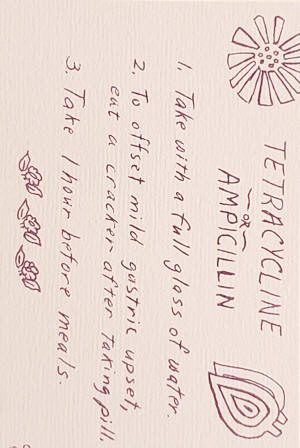 TETRACYCLINE
OR
AMPICILLIN
1. Take with a full glass of water.
2. To offset mild gastric upset,
eat a cracker after taking pill.
3. Take 1 hour before meals.